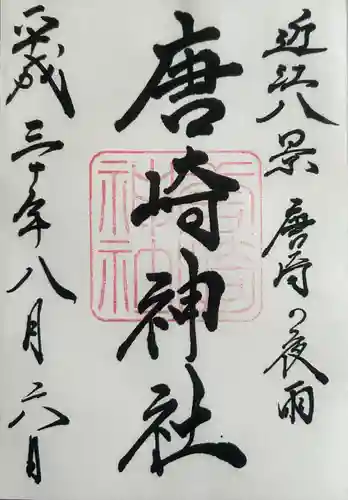 近江八景 唐崎の夜雨
唐崎神社
平成三十年八月六月